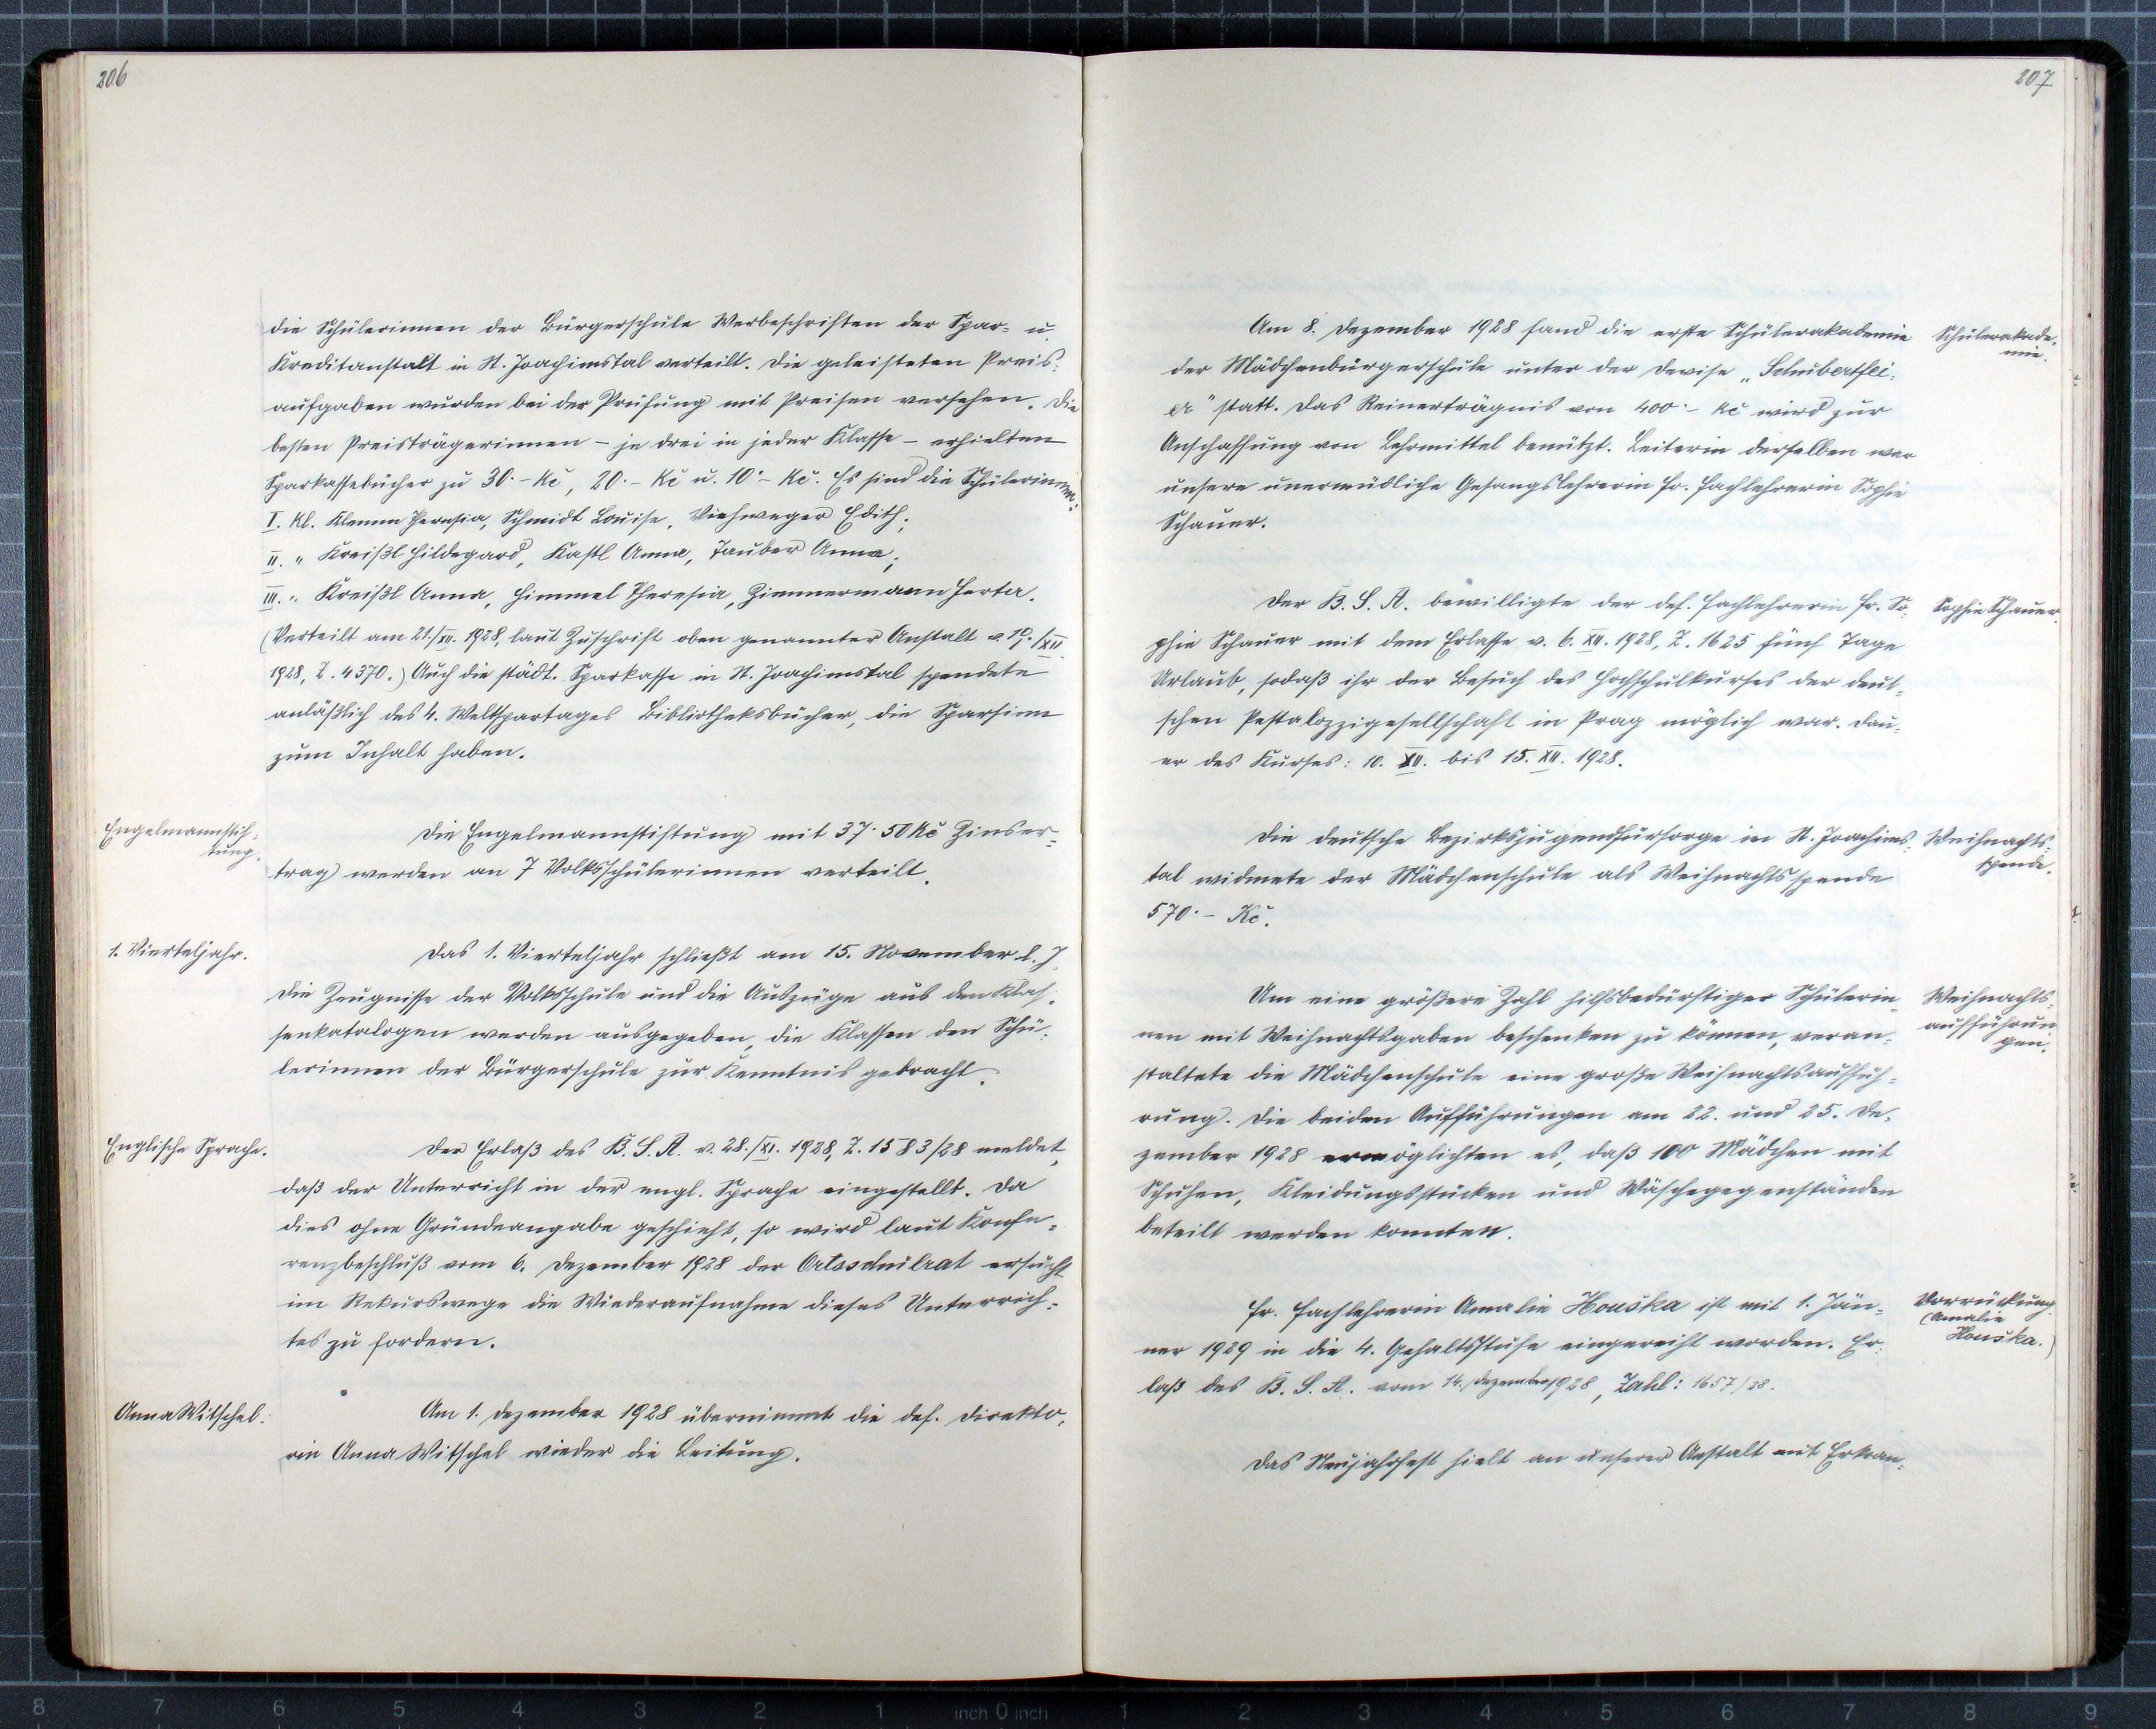 206
die Schülerinnen der Bürgerschule Werbeschriften der Spar- u.
Kreditanstalt in St. Joachimstal verteilt. Die geleisteten Preis-
aufgaben wurden bei der Prüfung mit Preisen versehen. Die
besten Preisträgerinnen – je drei in jeder Klasse – erhielten
Sparkassebücher zu 30·– Kč, 20·– Kč u. 10·– Kč. Es sind die Schülerinnen:
I. Kl. Klemm Theresia, Schmidt Louise, Viehweger Edith;
II. „ Kreißl Hildegard, Kastl Anna, Tauber Anna;
III. „ Kreißl Anna, Himmel Theresia, Zimmermann Herta.
(Verteilt am 21./XII. 1928, laut Zuschrift oben genannter Anstalt v. 19./XII.
1928, Z. 4370.) Auch die städt. Sparkasse in St. Joachimstal spendete
anläßlich des 4. Weltspartages Bibliotheksbücher, die Sparsinn
zum Inhalt haben.
Engelmannstif-
tung.
Die Engelmannstiftung mit 37·50 Kč Zinser-
trag werden an 7 Volksschülerinnen verteilt.
1. Vierteljahr.
Das 1. Vierteljahr schließt am 15. November l. J.
Die Zeugnisse der Volksschule und die Auszüge aus den Klas-
senkatalogen werden ausgegeben, die Klassen den Schü-
lerinnen der Bürgerschule zur Kenntnis gebracht.
Englische Sprache.
Der Erlaß des B. S. A. v. 28./XI. 1928, Z. 1583/28 meldet,
daß der Unterricht in der engl. Sprache eingestellt. Da
dies ohne Gründeangabe geschieht, so wird laut Konfe-
renzbeschluß vom 6. Dezember 1928 der Ortsschulrat ersucht
im Rekurswege die Wiederaufnahme dieses Unterrich-
tes zu fordern.
Anna Witschel.
Am 1. Dezember 1928 übernimmt die def. Direkto-
rin Anna Witschel wieder die Leitung.
207
Am 8. Dezember 1928 fand die erste Schülerakademie
der Mädchenbürgerschule unter der Devise „Schubertfei-
er" statt. Das Reinerträgnis von 400·– Kč wird zur
Anschaffung von Lehrmittel benützt. Leiterin derselben war
unsere unermüdliche Gesangslehrerin Fr. Fachlehrerin Sophie
Schauer.
Schülerakade-
mie.
Der B. S. A. bewilligte der def. Fachlehrerin Fr. So-
phie Schauer mit dem Erlasse v. 6. XII. 1928, Z. 1625 fünf Tage
Urlaub, sodaß ihr der Besuch des Hochschulkurses der deut-
schen Pestalozzigesellschaft in Prag möglich war. Dau-
er des Kurses: 10. XII. bis 15. XII. 1928.
Sophie Schauer.
Die deutsche Bezirksjugendfürsorge in St. Joachims-
tal widmete der Mädchenschule als Weihnachtsspende
570·– Kč.
Weihnachts-
spende.
Um eine größere Zahl hilfsbedürftiger Schülerin-
nen mit Weihnachtsgaben beschenken zu können, veran-
staltete die Mädchenschule eine große Weihnachtsauffüh-
rung. Die beiden Aufführungen am 22. und 25. De-
zember 1928 ermöglichten es, daß 100 Mädchen mit
Schuhen, Kleidungsstücken und Wäschegegenständen
beteilt werden konnten.
Weihnachts-
aufführun
gen.
Fr. Fachlehrerin Amalie Houška ist mit 1. Jän-
ner 1929 in die 4. Gehaltsstufe eingereiht worden. Er-
laß des B. S. A. vom 14. Dezember 1928, Zahl: 1657/28.
Vorrückung
(Amalie
Houška.)
Das Neujahrsfest hielt an unserer Anstalt mit Erkran-
8 7 6 5 4 3 2 1 inch 0 inch 1 2 3 4 5 6 7 8 9